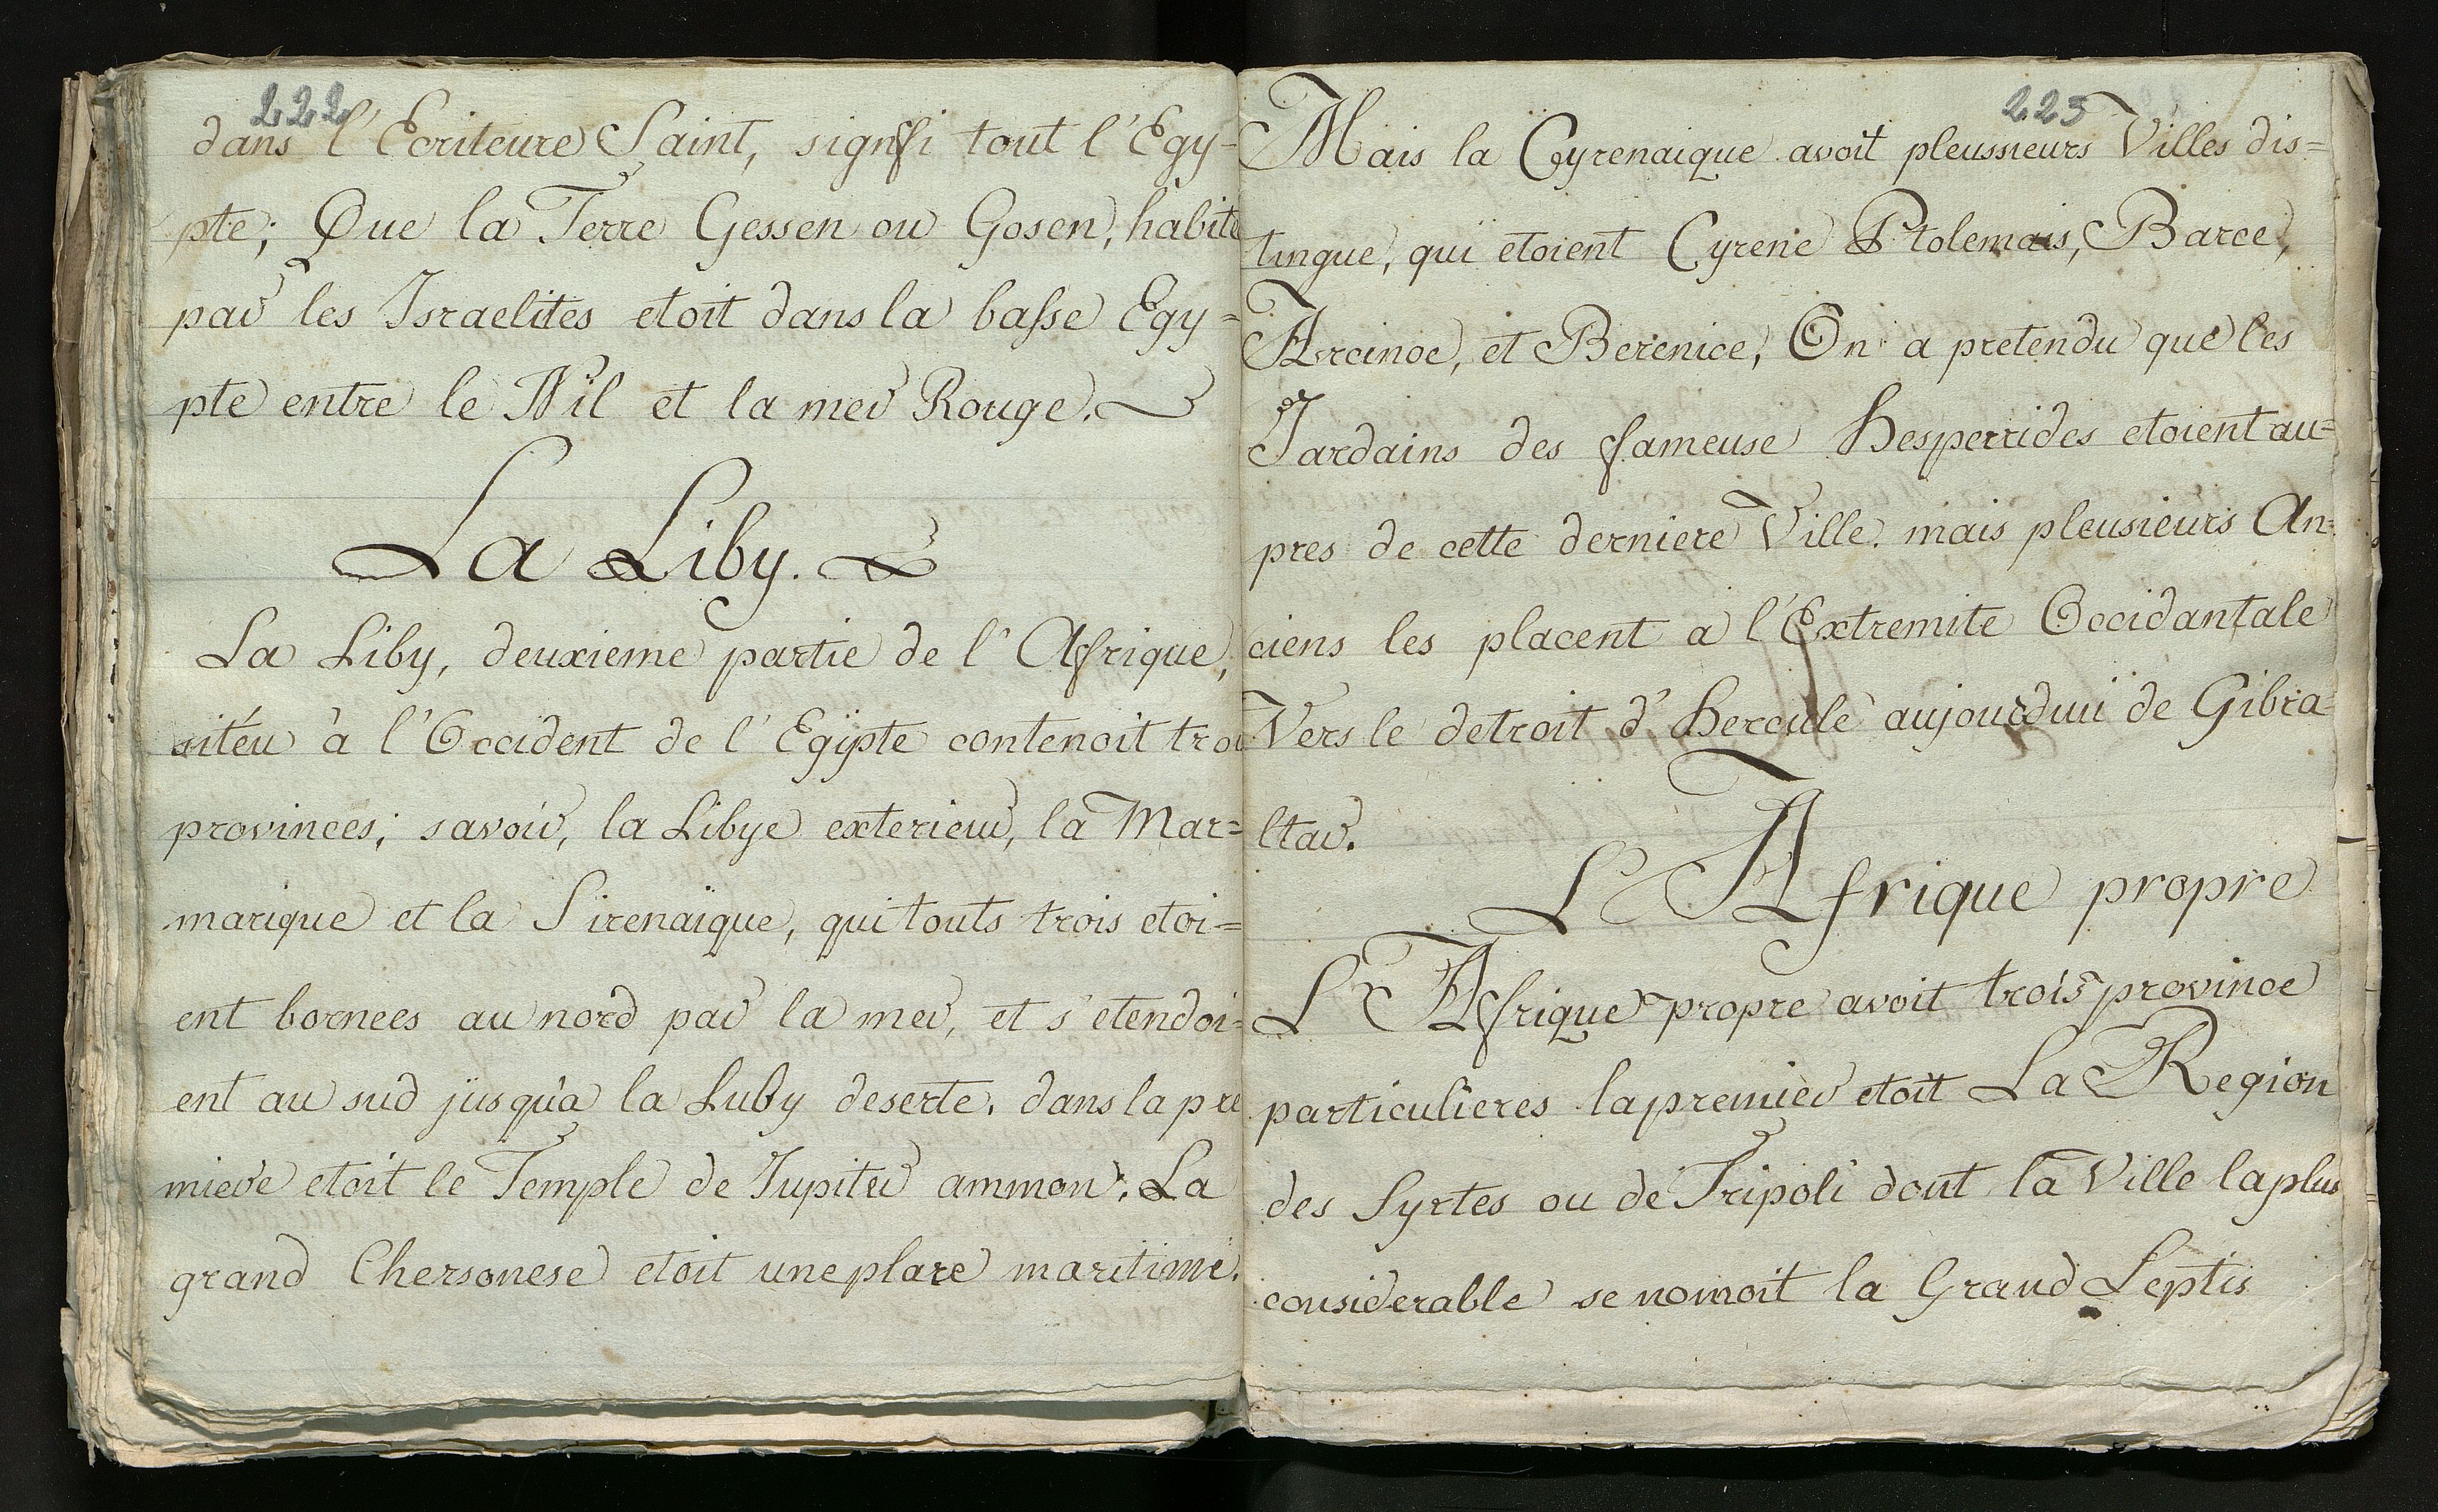 222
dans l'Ecriteure Saint, signifi tout l'Egy-
pte; Que la Terre Gessen ou Gosen, habite
par les Israelites etoit dans la basse Egy=
pte entre le Nil et la mer Rouge.
La Liby.
La Liby, deuxieme partie de l'Afrique,
sitéu à l'Occident de l'Egÿpte contenoit troi
provinces; savoir, la Libye exterieur, la Mar=
marique et la Sirenaique, qui touts trois etoi=
ent bornees au nord par la mer, et s'etendoi=
ent au sud jusqu'a la Luby deserte. dans la pre
miere etoit le Temple de Jupiter ammon. La
grand Chersonese etoit une place maritime.
223
Mais la Cyrenaique avoit pleussieurs Villes dis=
tingue, qui etoient Cyrene Ptolemais, Barce,
Arcinoe, et Berenice, On a pretendu que les
Jardains des fameuse Hesperrides etoient au=
pres de cette derniere Ville. mais pleusieurs An=
ciens les placent a l'Extremite Occidantale
Vers le detroit d'Hercule aujourdui de Gibra=
ltar.
L'Afrique propre
L'Afrique propre avoit trois province
particulieres la premier etoit La Region
des Syrtes ou de Tripoli dont la Ville la plus
considerable se nomoit la Grand Leptis